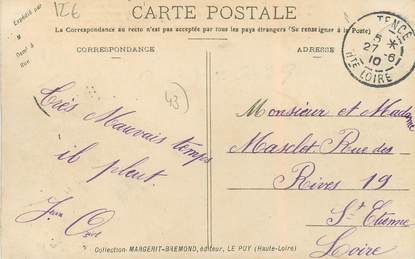 126
CARTE POSTALE
Expédié par
M
Dem.t à
Rue
La Correspondance au recto n'est pas acceptée par tous les pays étrangers (Se renseigner à la Poste)
TENCE
5 *
27 -6
10
HTE LOIRE
CORRESPONDANCE
ADRESSE
43
Très Mauvais temps
il pleut.
Jean
Monsieur et Madame
Maselot Rue des
Rives 19
St Etienne
Loire
Collection MARGERIT-BREMOND, éditeur, LE PUY (Haute-Loire)